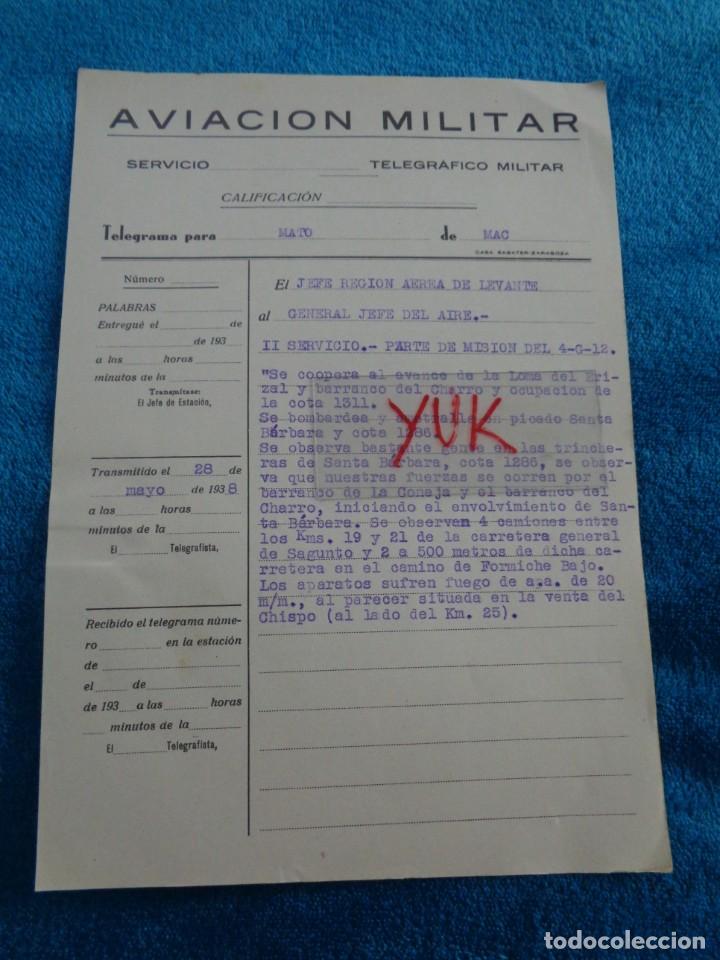 AVIACION MILITAR
SERVICIO TELEGRÁFICO MILITAR
CALIFICACIÓN
Telegrama para MATO de MAC
CASA SABATER-ZARAGOZA
Número
PALABRAS
Entregué el de
de 193
a las horas
minutos de la
Transmítase:
El Jefe de Estación,
Transmitido el 28 de
mayo de 1938
a las horas
minutos de la
El Telegrafista,
Recibido el telegrama núme-
ro en la estación
de
el de
de 193 a las horas
minutos de la
El Telegrafista,
El JEFE REGION AEREA DE LEVANTE
al GENERAL JEFE DEL AIRE.-
II SERVICIO.- PARTE DE MISION DEL 4-G-12.
"Se coopera al avance de la Loma del Eri-
zal y barranco del Charro y ocupacion de
la cota 1311.
Se bombardea y en picado Santa
Bárbara y cota 1286.
Se observa bastante gente en las trinche-
ras de Santa Bárbara, cota 1286, se obser-
va que nuestras fuerzas se corren por el
barranco de la Coneja y el barranco del
Charro, iniciando el envolvimiento de San-
ta Bárbara. Se observan 4 camiones entre
los Kms. 19 y 21 de la carretera general
de Sagunto y 2 a 500 metros de dicha ca-
rretera en el camino de Formiche Bajo.
Los aparatos sufren fuego de a.a. de 20
m/m., al parecer situada en la venta del
Chispo (al lado del Km. 25).
YUK
todocoleccion